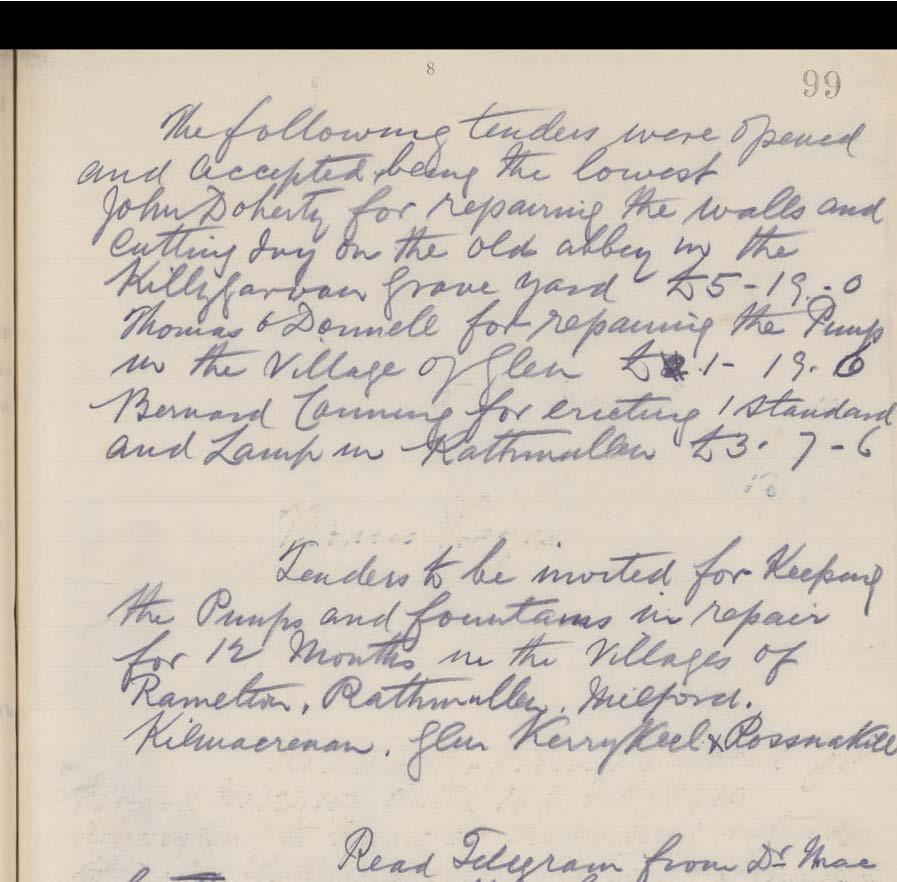 8
99
The following tenders were opened
and accepted being the lowest
John Doherty for repairing the walls and
Cutting Ivy on the old abbey in the
Killygarvan Grave yard £5-19.-0
Thomas O'Donnell for repairing the Pump
in the Village of Glen £1-19.6
Bernard Canning for erecting 1 Standard
and Lamp in Rathmullen £3.7-6
Tenders to be invited for Keeping
the Pumps and fountains in repair
for 12 Months in the Villages of
Ramelton, Rathmullen, Milford.
Kilmacrenan. Glen Kerrykeel & Rossnakill
Read Telegram from Dr Mac